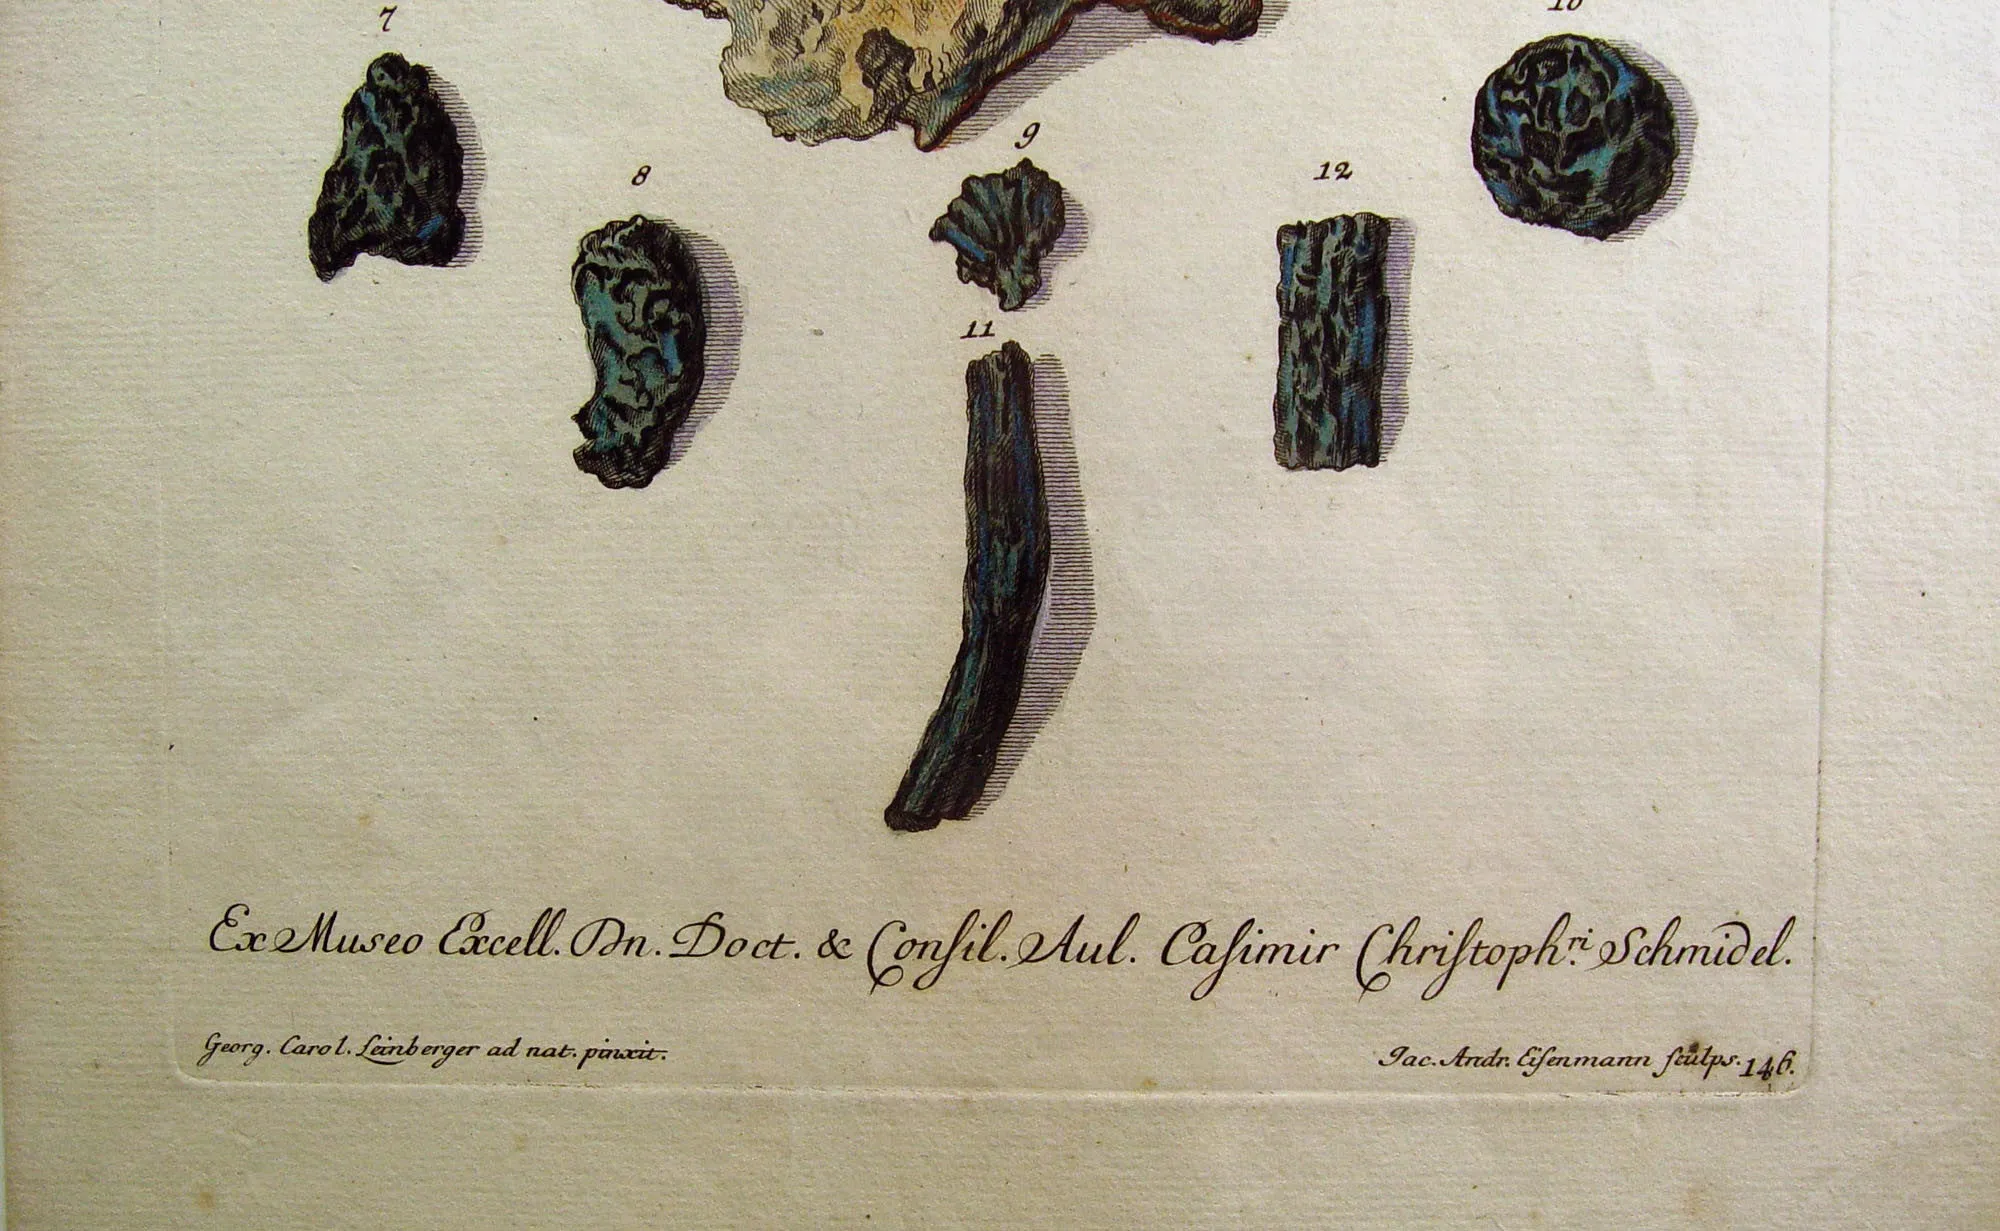 7
10
9
8
12
11
Ex Museo Excell. Dn. Doct. & Conſil. Aul. Caſimir Chriſtoph.ri Schmidel.
Georg. Carol. Leinberger ad nat. pinxit.
Jac. Andr. Eiſenmann ſculps. 146.